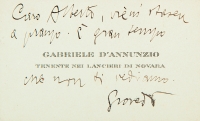 Caro Alberto, vieni stasera
a pranzo. È gran tempo
GABRIELE D'ANNUNZIO
TENENTE NEI LANCIERI DI NOVARA
che non ti vediamo.
Giovedì